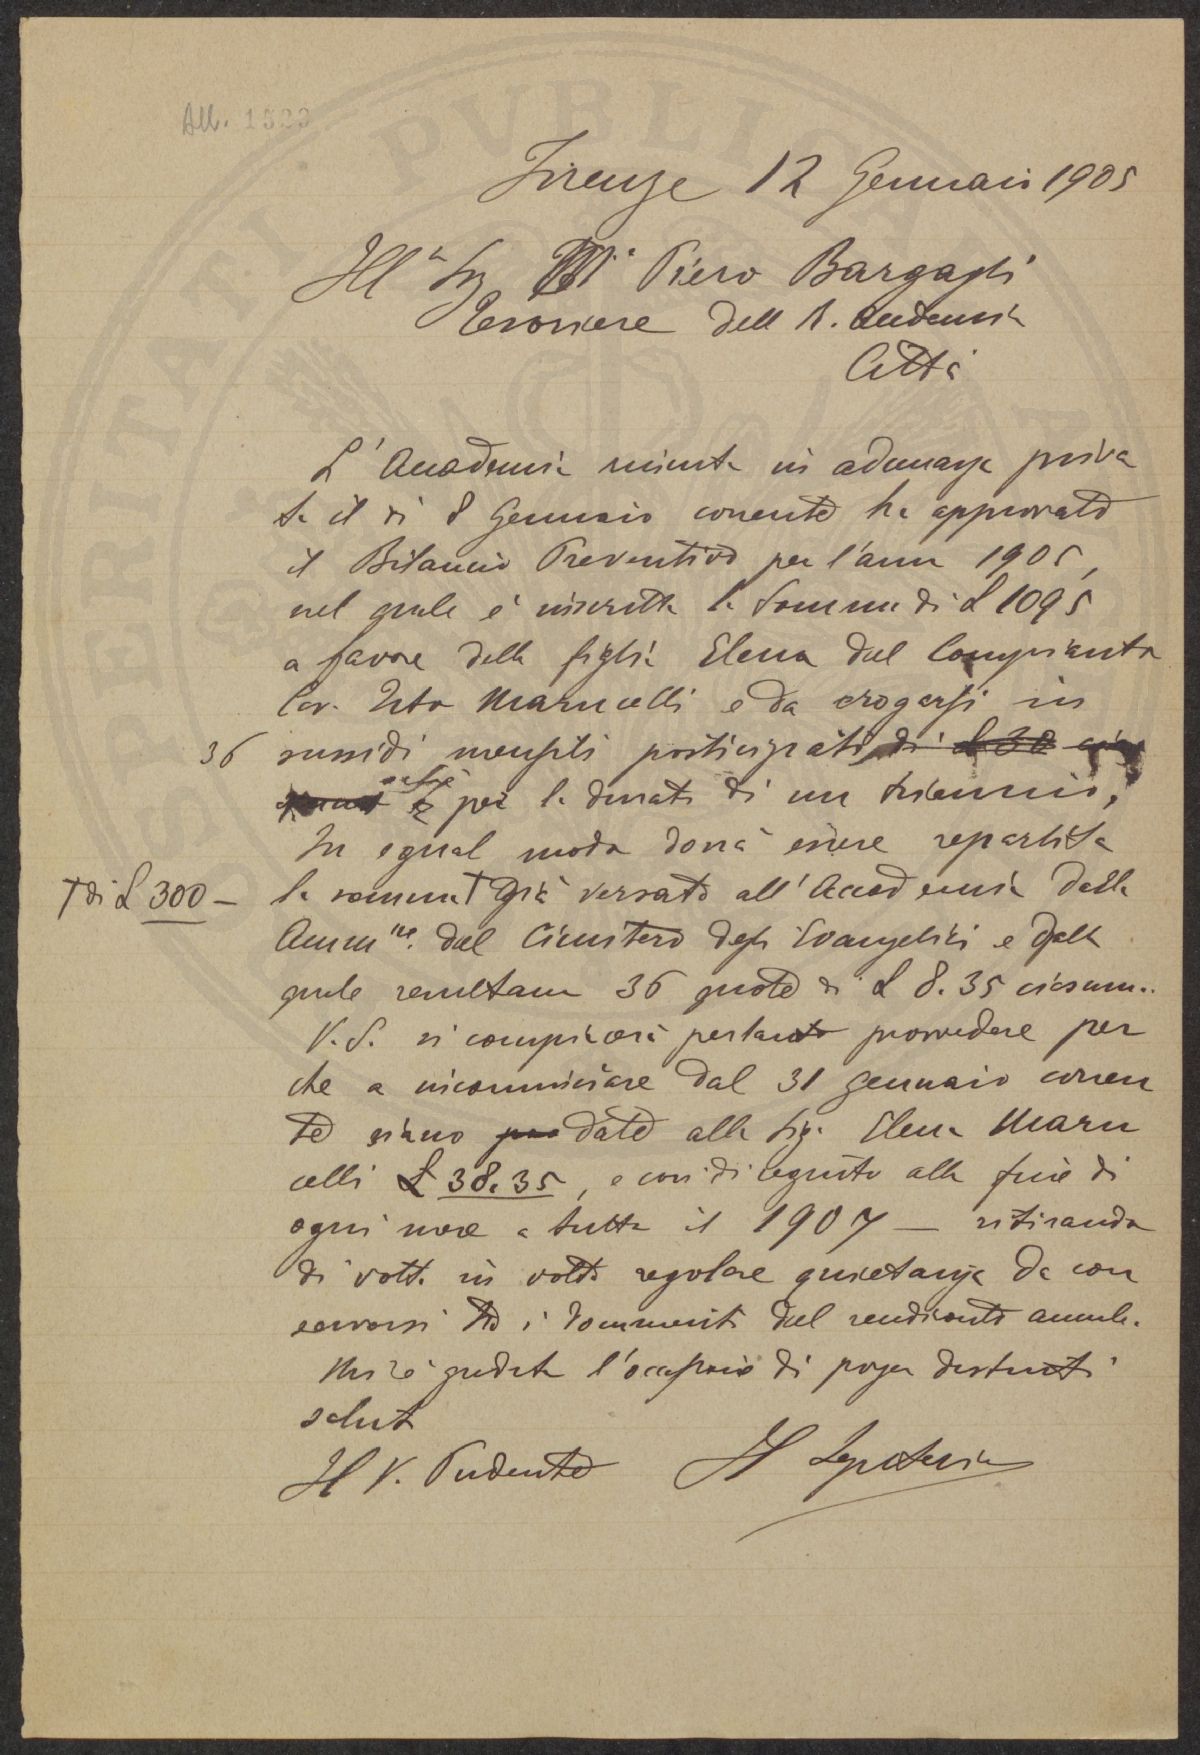 All. 1523
Firenze 12 Gennaio 1905
Ill.o Sig. Piero Bargagli
Tesoriere dell R. Accademia
Città
L'Accademia riunita in adunanza priva
ta il dì 8 Gennaio corrente ha approvato
il Bilancio Preventivo per l'anno 1905,
nel quale è inscritta la somma di £ 1095
a favore della figlia Elena del Compianto
Cav. Marucelli e da erogarsi in
36 sussidi mensili posticipati di £ 30
per la durata di un triennio,
In egual modo dovrà essere repartita
la somma T già versato all'Accademia dalla
T di £ 300 –
Amm.ne del Cimitero degli Evangelici e dalla
quale resultano 36 quote di £ 8.35 ciascuna.
V.S. si compiacerà pertanto provvedere per
che a incominciare dal 31 gennaio corren
te siano date alla Sig.a Elena Maru
celli £ 38.35, e così di seguito alla fine di
ogni mese a tutto il 1907 – ritirando
di volta in volta regolare quietanza da con
servarsi tra i documenti del rendiconto annuale.
Mi è gradita l'occasione di porger distinti
saluti
Il V. Presidente Il Segretario